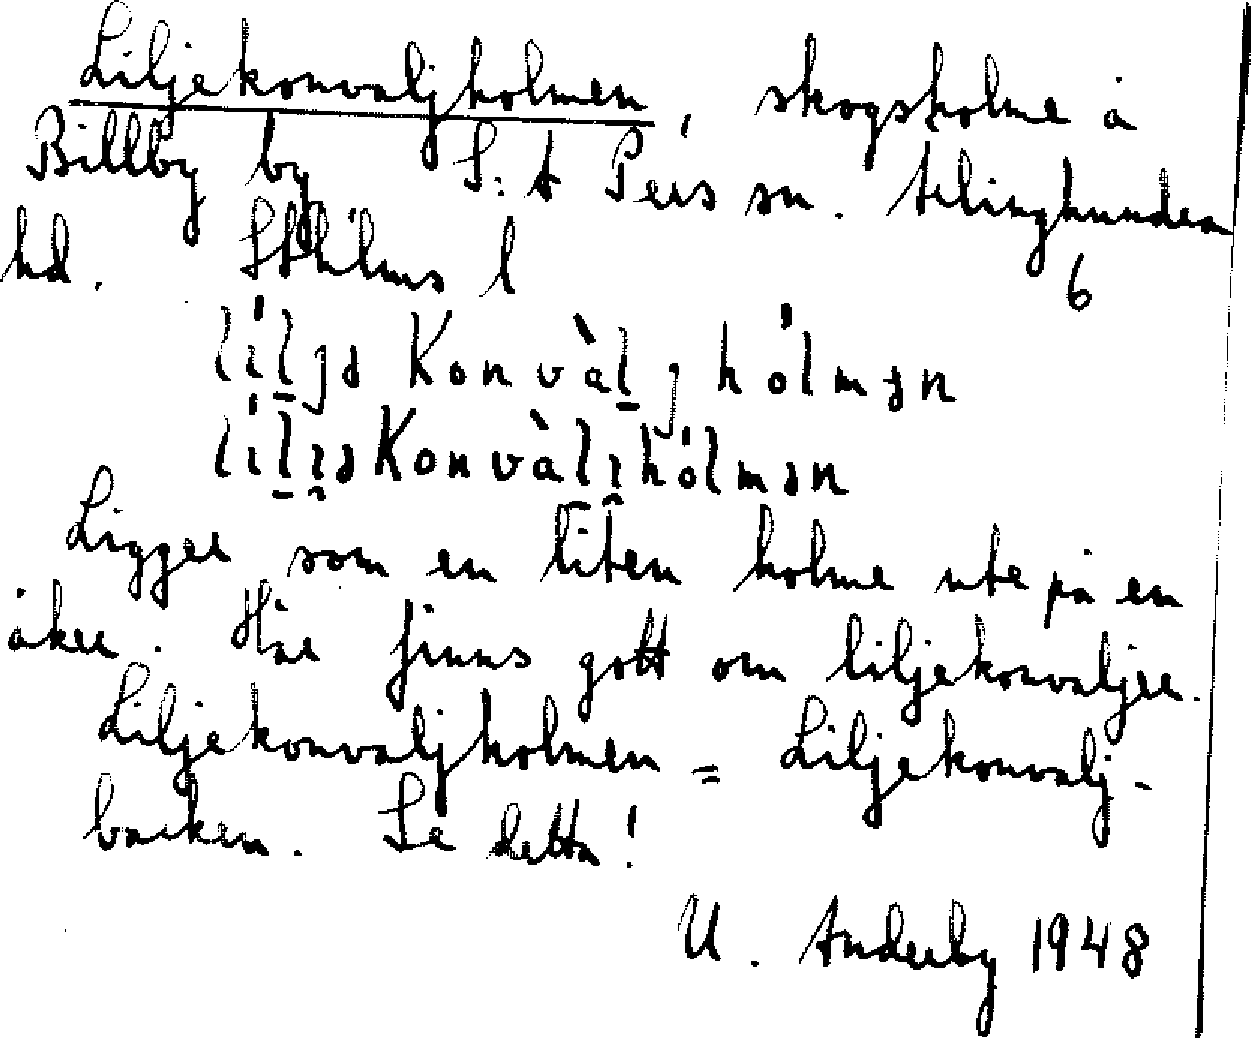 Liljekonvaljholmen, skogsholme å
Billby by S:t Pers sn. Ärlinghundra
hd. Sthlms l
6
líḷjə konvàḷj hólmən
líḷi̯əkonvàḷi̯hólmən
Ligger som en liten holme ute på en
åker. Här finns gott om liljekonvaljer.
Liljekonvaljholmen = Liljekonvalj-
backen. Se detta!
U. Anderby 1948